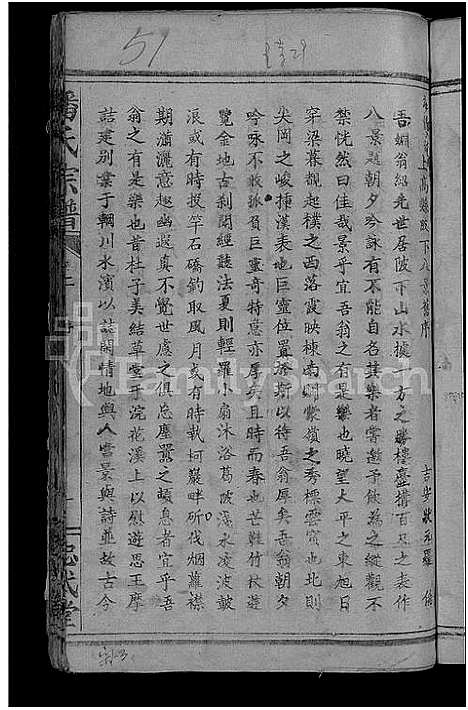 51
上高縣陂下八景舊序
吉安狀元羅倫
吾嫻翁紹先世居陂下山水據十方之勝樓臺搆百凡之表作
八景題朝夕吟詠有不能自名其樂者嘗邀予飲為之縱觀不
禁恍然曰佳哉景乎宜吾翁之有是樂也曉望太平之東旭日
穿梁暮觀起樸之西落霞映棟南嶺之秀標雲窓也北則
尖岡之峻插漢表地巨靈位置於斯以待吾翁厚矣吾翁朝夕
吟咏不敢孤負巨靈奇特意亦厚矣且時而春也芒鞋竹杖遊
覽金地古刹聞經談法夏則輕羅小扇沐浴葛陂淺水凌波鼓
浪或有時投竿石磯釣取風月或有時執柯巖畔斫伐烟蘿襟
期瀟灑意趣幽遐真不覺世慮之俱忘塵囂之頓息者宜乎吾
翁之有是樂也昔杜子美結草堂于浣花溪上以慰遊思王摩
詰建别業于輞川水濱以誌閑情地與人雪景與詩並故古今
潘氏宗譜
FamilySearch